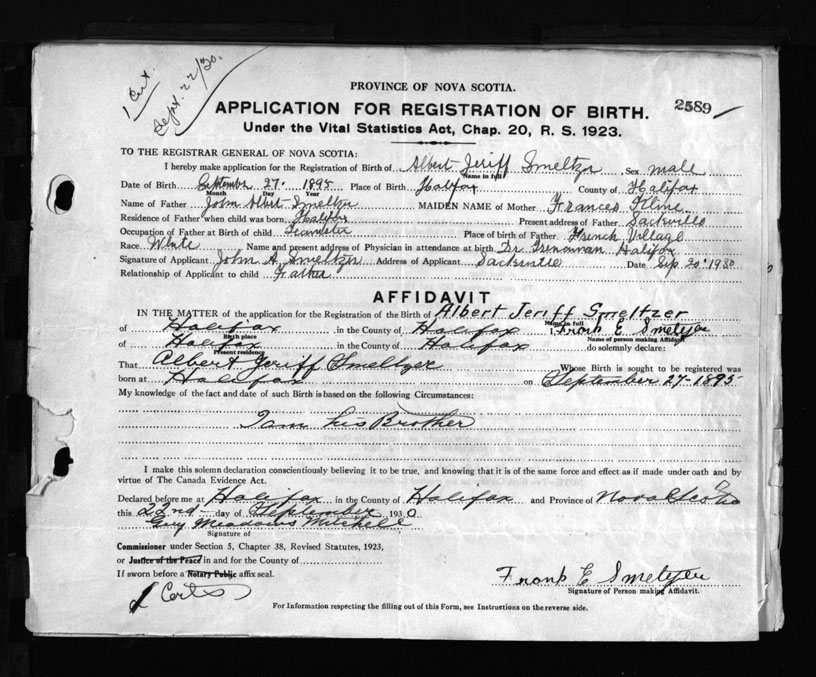 1 Cert.
Sept. 22/30.
PROVINCE OF NOVA SCOTIA.
2589
APPLICATION FOR REGISTRATION OF BIRTH.
Under the Vital Statistics Act, Chap. 20, R. S. 1923.
TO THE REGISTRAR GENERAL OF NOVA SCOTIA:
I hereby make application for the Registration of Birth of Albert Jeriff Smeltzer Sex male
Name in full
Date of Birth September 27. 1895 Place of Birth Halifax County of Halifax
Month Day Year
Name of Father John Albert Smeltzer MAIDEN NAME of Mother Frances
Residence of Father when child was born Halifax Present address of Father Sackville
Occupation of Father at Birth of child Teamster Place of birth of Father French Village
Race White Name and present address of Physician in attendance at birth Dr. Halifax
Signature of Applicant John A Smeltzer Address of Applicant Sackville Date Sep. 20. 1930
Relationship of Applicant to child Father
AFFIDAVIT
IN THE MATTER of the application for the Registration of the Birth of Albert Jeriff Smeltzer
Name in full
of Halifax in the County of Halifax I, Frank E Smeltzer
Birth place Name of person making Affidavit
of Halifax in the County of Halifax do solemnly declare:
Present residence
That Albert Jeriff Smeltzer Whose Birth is sought to be registered was
born at Halifax on September 27-1895
My knowledge of the fact and date of such Birth is based on the following Circumstances:
I am his Brother
I make this solemn declaration conscientiously believing it to be true, and knowing that it is of the same force and effect as if made under oath and by
virtue of The Canada Evidence Act.
Declared before me at Halifax in the County of Halifax and Province of Nova Scotia
this 22nd day of September 1930
Guy Meadows Mitchell
Signature of
Commissioner under Section 5, Chapter 38, Revised Statutes, 1923,
or Justice of the Peace in and for the County of
If sworn before a Notary Public affix seal.
Frank E Smeltzer
Signature of Person making Affidavit.
1 Cert
For Information respecting the filling out of this Form, see Instructions on the reverse side.